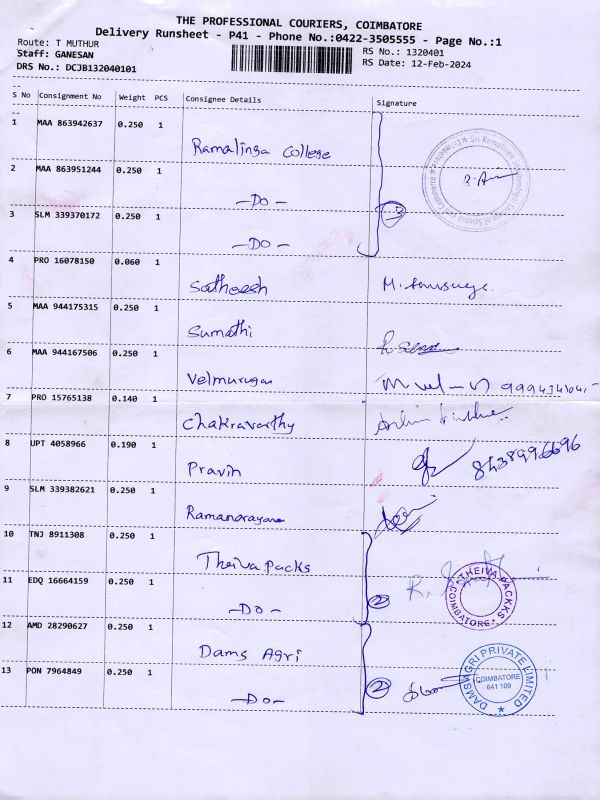 THE PROFESSIONAL COURIERS, COIMBATORE
Delivery Runsheet - P41 - Phone No.:0422-3505555 - Page No.:1
Route: T MUTHUR
Staff: GANESAN
DRS No.: DCJB132040101
RS No.: 1320401
RS Date: 12-Feb-2024
S No Consignment No Weight PCS Consignee Details Signature
1 MAA 863942637 0.250 1
Ramalinga College
2 MAA 863951244 0.250 1
-DO-
3 SLM 339370172 0.250 1
-DO-
3
4 PRO 16078150 0.060 1
Satheesh
5 MAA 944175315 0.250 1
Sumathi
6 MAA 944167506 0.250 1
Velmurugan
7 PRO 15765138 0.140 1
Chakravarthy
8 UPT 4058966 0.190 1
Pravin
8438996696
9 SLM 339382621 0.250 1
Ramanarayana
10 TNJ 8911308 0.250 1
Theiva Packs
11 EDQ 16664159 0.250 1
-DO-
2
THEIVA PACKKS
COIMBATORE
12 AMD 28290627 0.250 1
Dams Agri
13 PON 7964849 0.250 1
-DO-
2
DAMS AGRI PRIVATE LIMITED
COIMBATORE
641 109